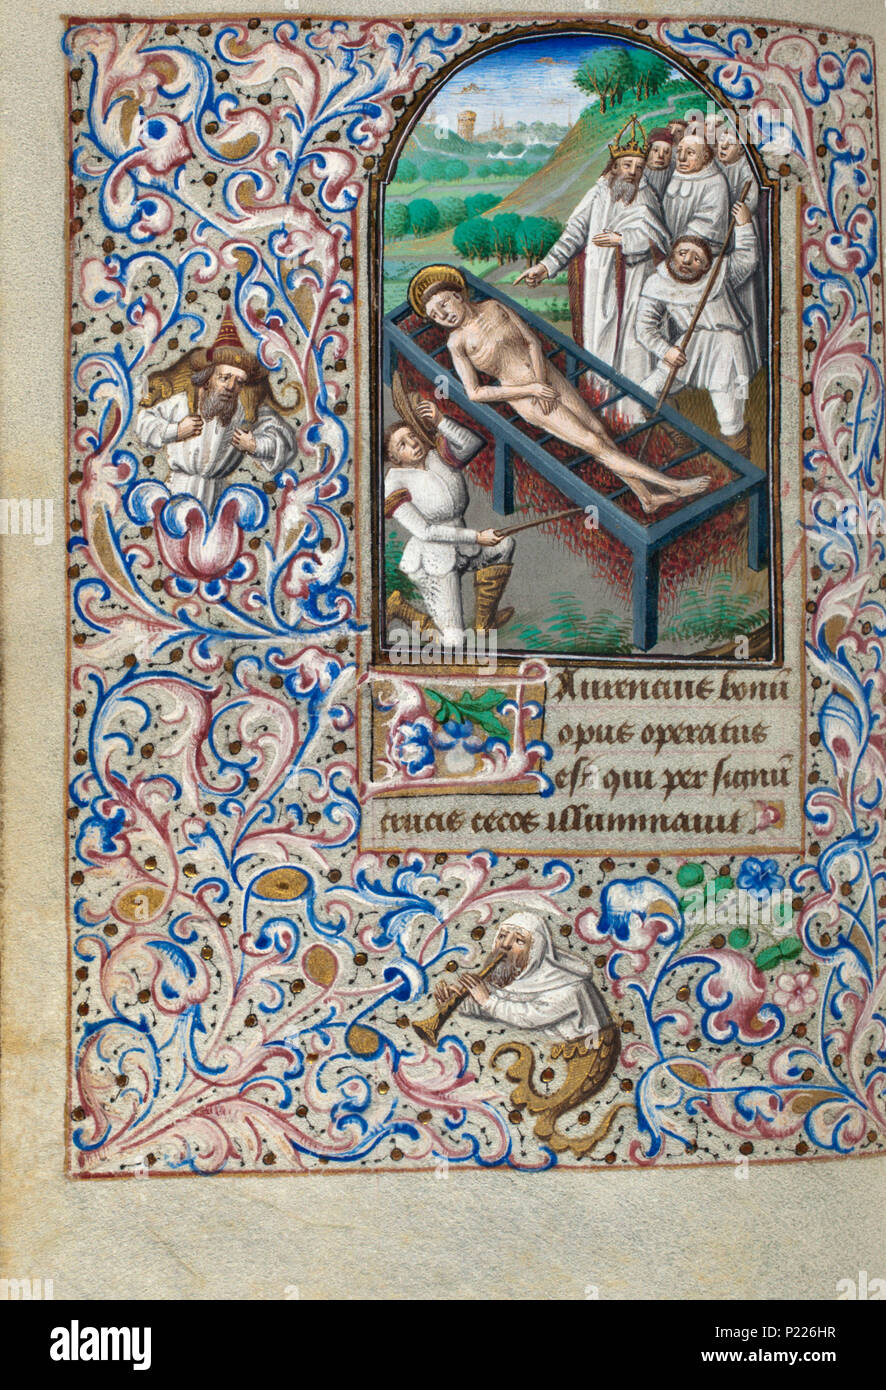 Laurencius bonū
opus operatus
est qui per signū
crucis cecos illuminauit
alamy
Image ID: P226HR
www.alamy.com